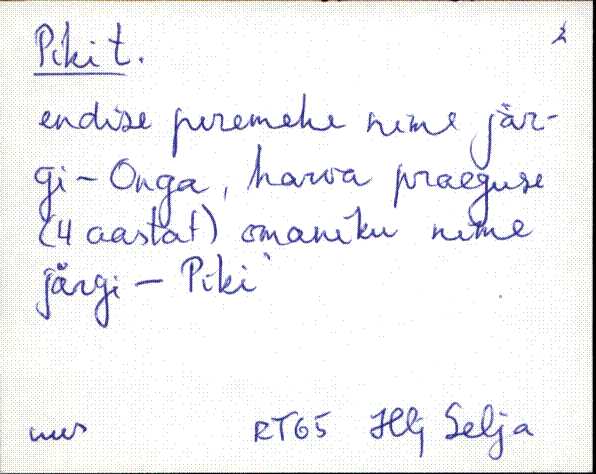 Piki t.
2
endise peremehe nime jär-
gi - Onga, harva praeguse
(4 aastat) omaniku nime
järgi - Piki
RT65 Hlj Selja